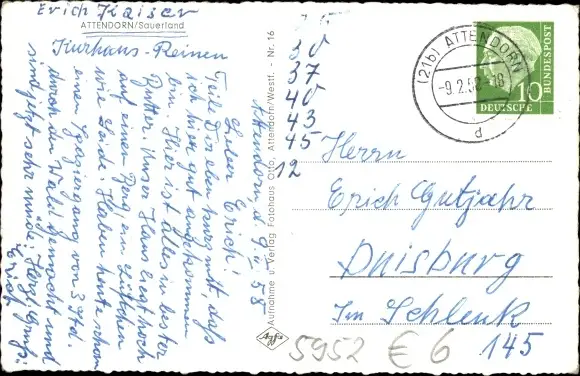 Erich Kaiser
ATTENDORN/Sauerland
Kurhaus-Reinen
Attendorn d. 9.II.58
Lieber Erich!
Teile Dir eben kurz mit, daß
ich hier gut angekommen
bin. Hier ist alles in bester
Butter. Unser Haus liegt hoch
auf einem Berg, ein Lüftchen
wie Seide. Haben heute schon
einen Spaziergang von 3 Std.
durch den Wald gemacht und
sind jetzt sehr müde. Herzl. Gruß
Erich
Aufnahme u. Verlag Fotohaus Otto, Attendorn/Westf. - Nr. 16
Agfa
30
37
40
43
45
12
(21b) ATTENDORN
-9.2.58.-18
d
10
DEUTSCHE
BUNDESPOST
Herrn
Erich Gutjahr
Duisburg
Im Schlenk
145
5952 € 6